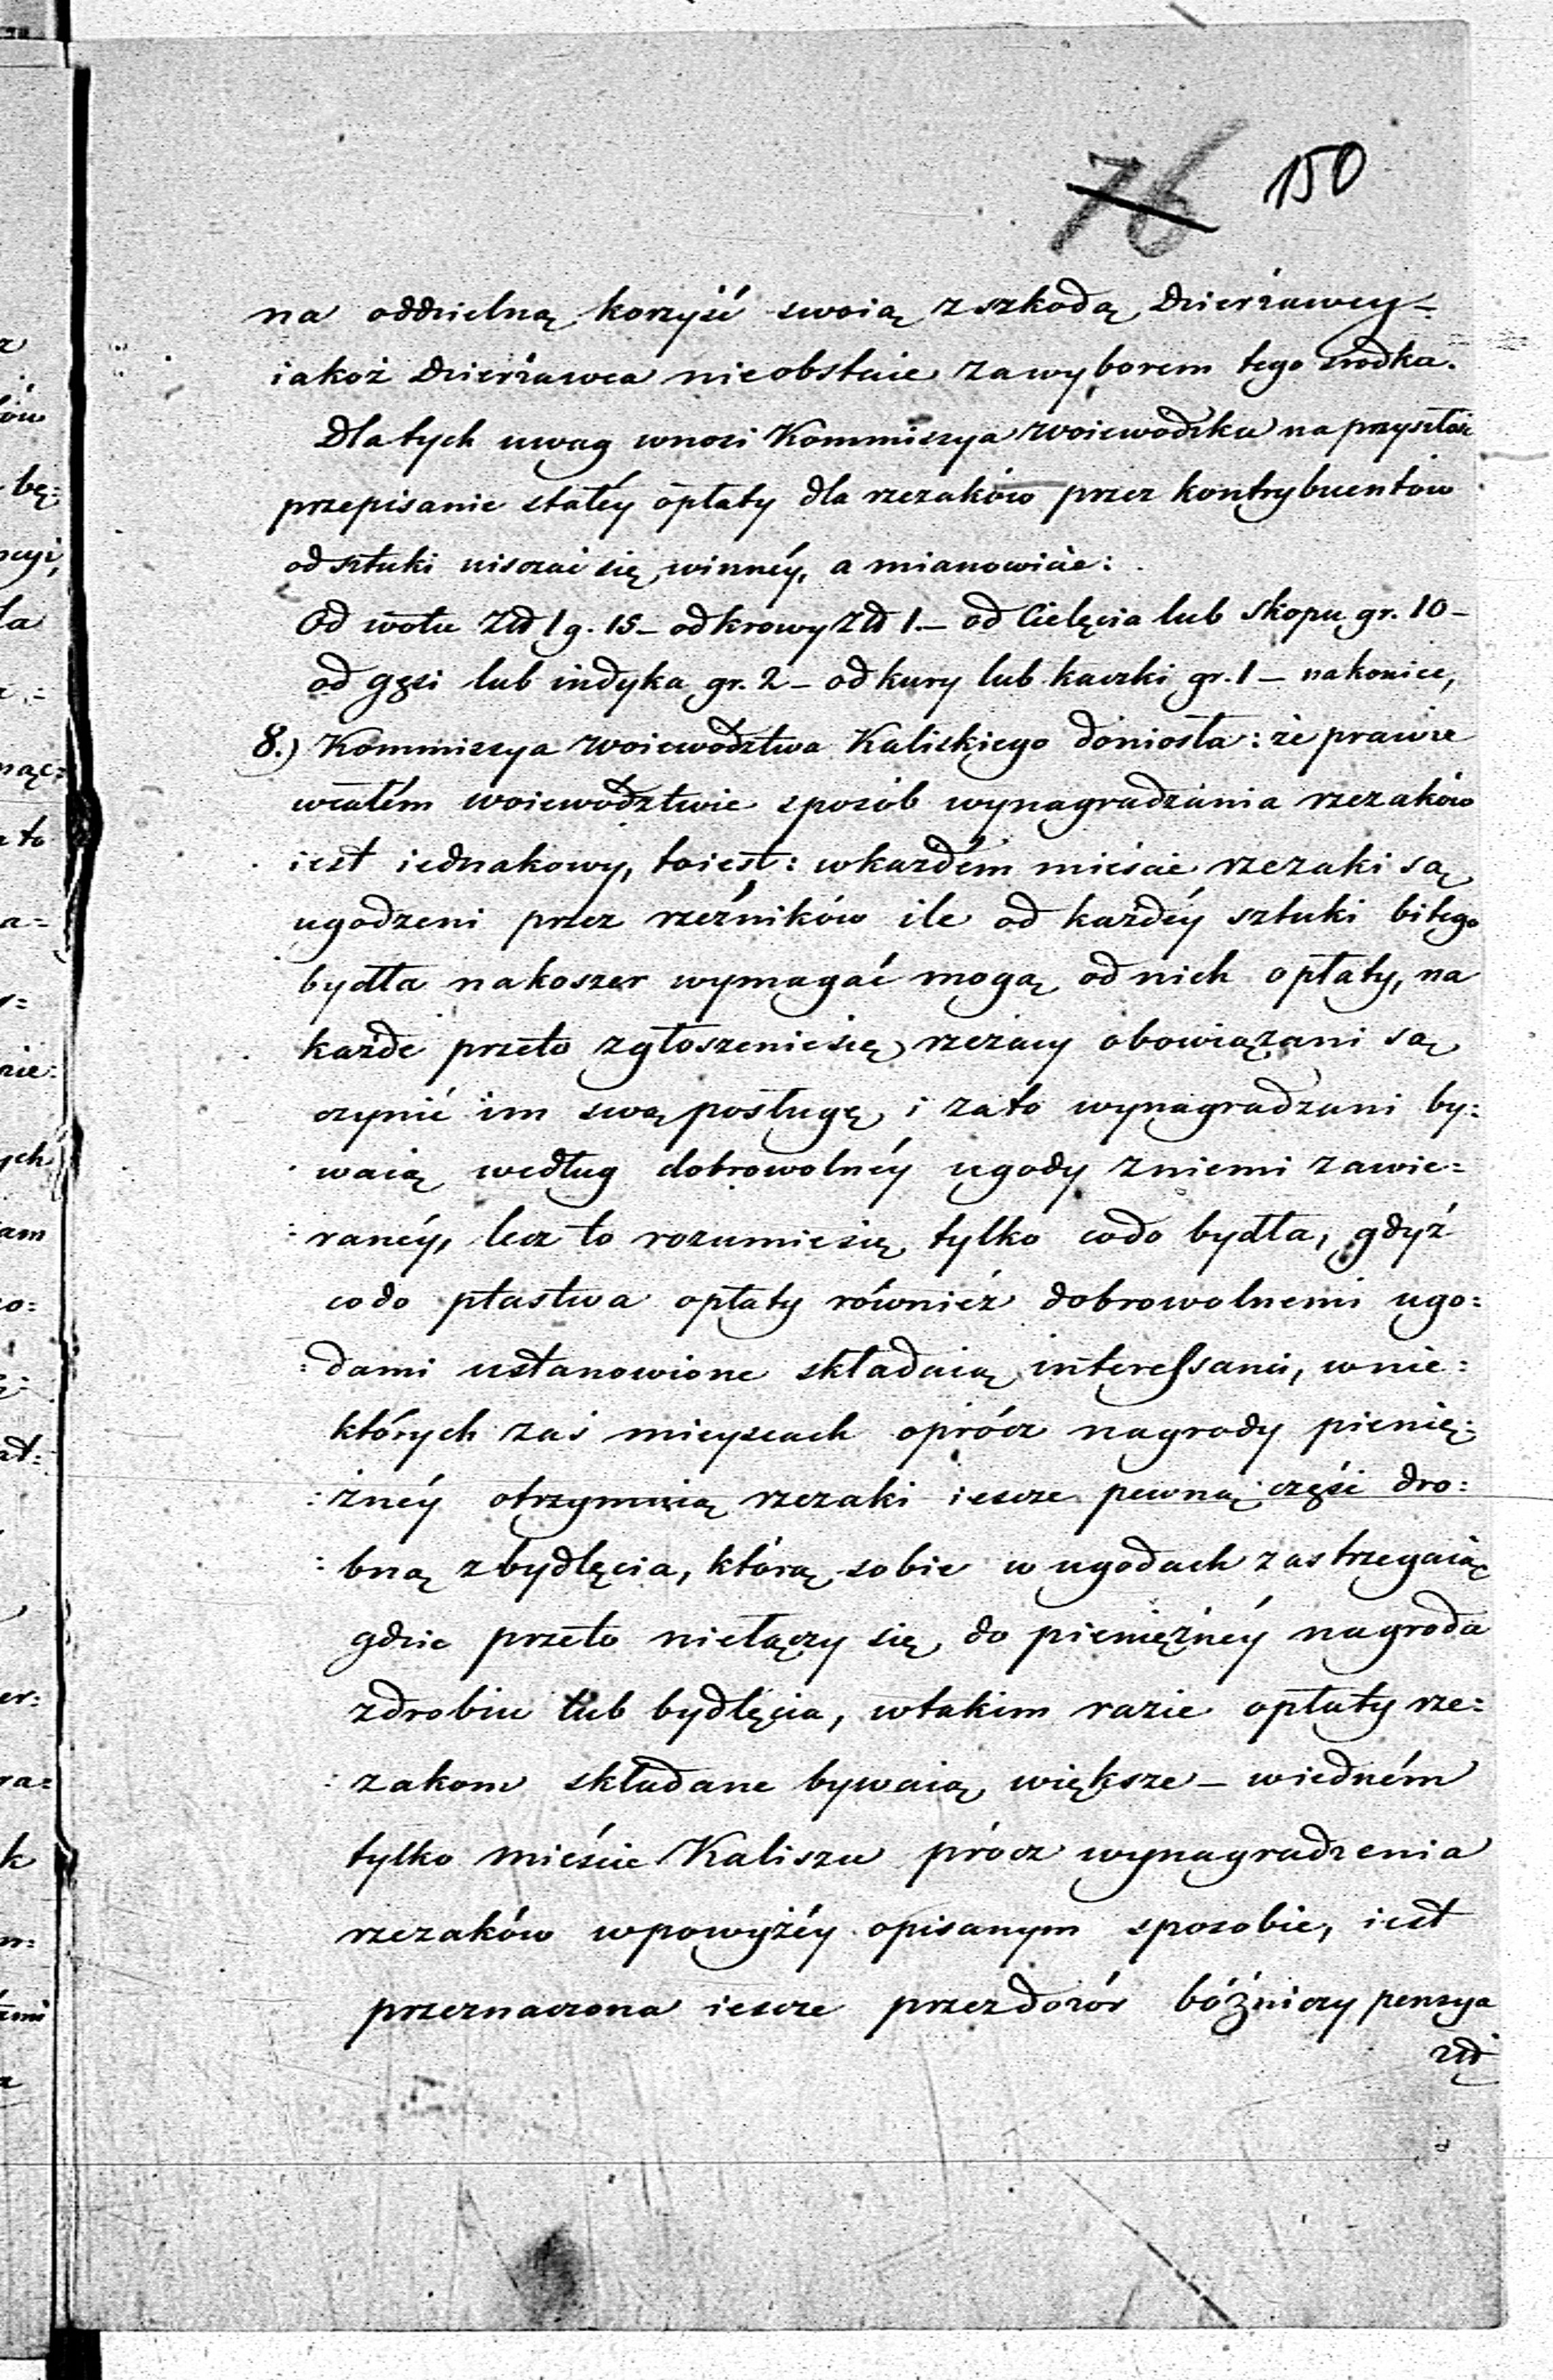 76 150
na oddzielną korzyść swoią z szkodą Dzierżawcy =
iakoż Dzierżawca nieobstaie za wyborem tego środka.
Dla tych uwag wnosi Kommissya Woiewódzka na przyszłość
przepisanie stałéy opłaty dla rzezaków przez kontrybuentów
od sztuki uiszczać się winnéy, a mianowicie:
Od wołu Złł 1 g. 15 – od krowy Złł 1. – od Cielęcia lub Skopu gr. 10 –
od gęsi lub indyka gr. 2 – od kury lub kaczki gr. 1 – nakoniec,
8.) Kommissya Województwa Kaliskiego doniosła: że prawie
wcałém woiewództwie sposób wynagradzania rzezaków
iest iednakowy, toiest: wkażdém mieście rzezaki są
ugodzeni przez rzeźników ile od każdéy sztuki bitego
bydła nakoszer wymagać mogą od nich opłaty, na
każde przeto zgłoszeniesię rzezacy obowiązani są
czynić im swą posługę i zato wynagradzani by:
waią według dobrowolnéy ugody zniemi zawie=
: ranéy, lecz to rozumiesię tylko codo bydła, gdyż
codo ptastwa opłaty również dobrowolnemi ugo:
= dami ustanowione składaią interessanci, wnie:
których zaś mieyscach oprócz nagrody pienię:
: żnéy otrzymuią rzezaki iescze pewną część dro:
: bną z bydlęcia, którą sobie w ugodach zastrzegaią
gdzie przeto niełączy się do pieniężnéy nagroda
zdrobiu lub bydlęcia, wtakim razie opłaty rze:
: zakom składane bywaią większe – wiedném
tylko mieście Kaliszu prócz wynagradzenia
rzezaków wpowyżéy opisanym sposobie, iest
przeznaczona iescze przez dozór bóżniczy pensya
złł